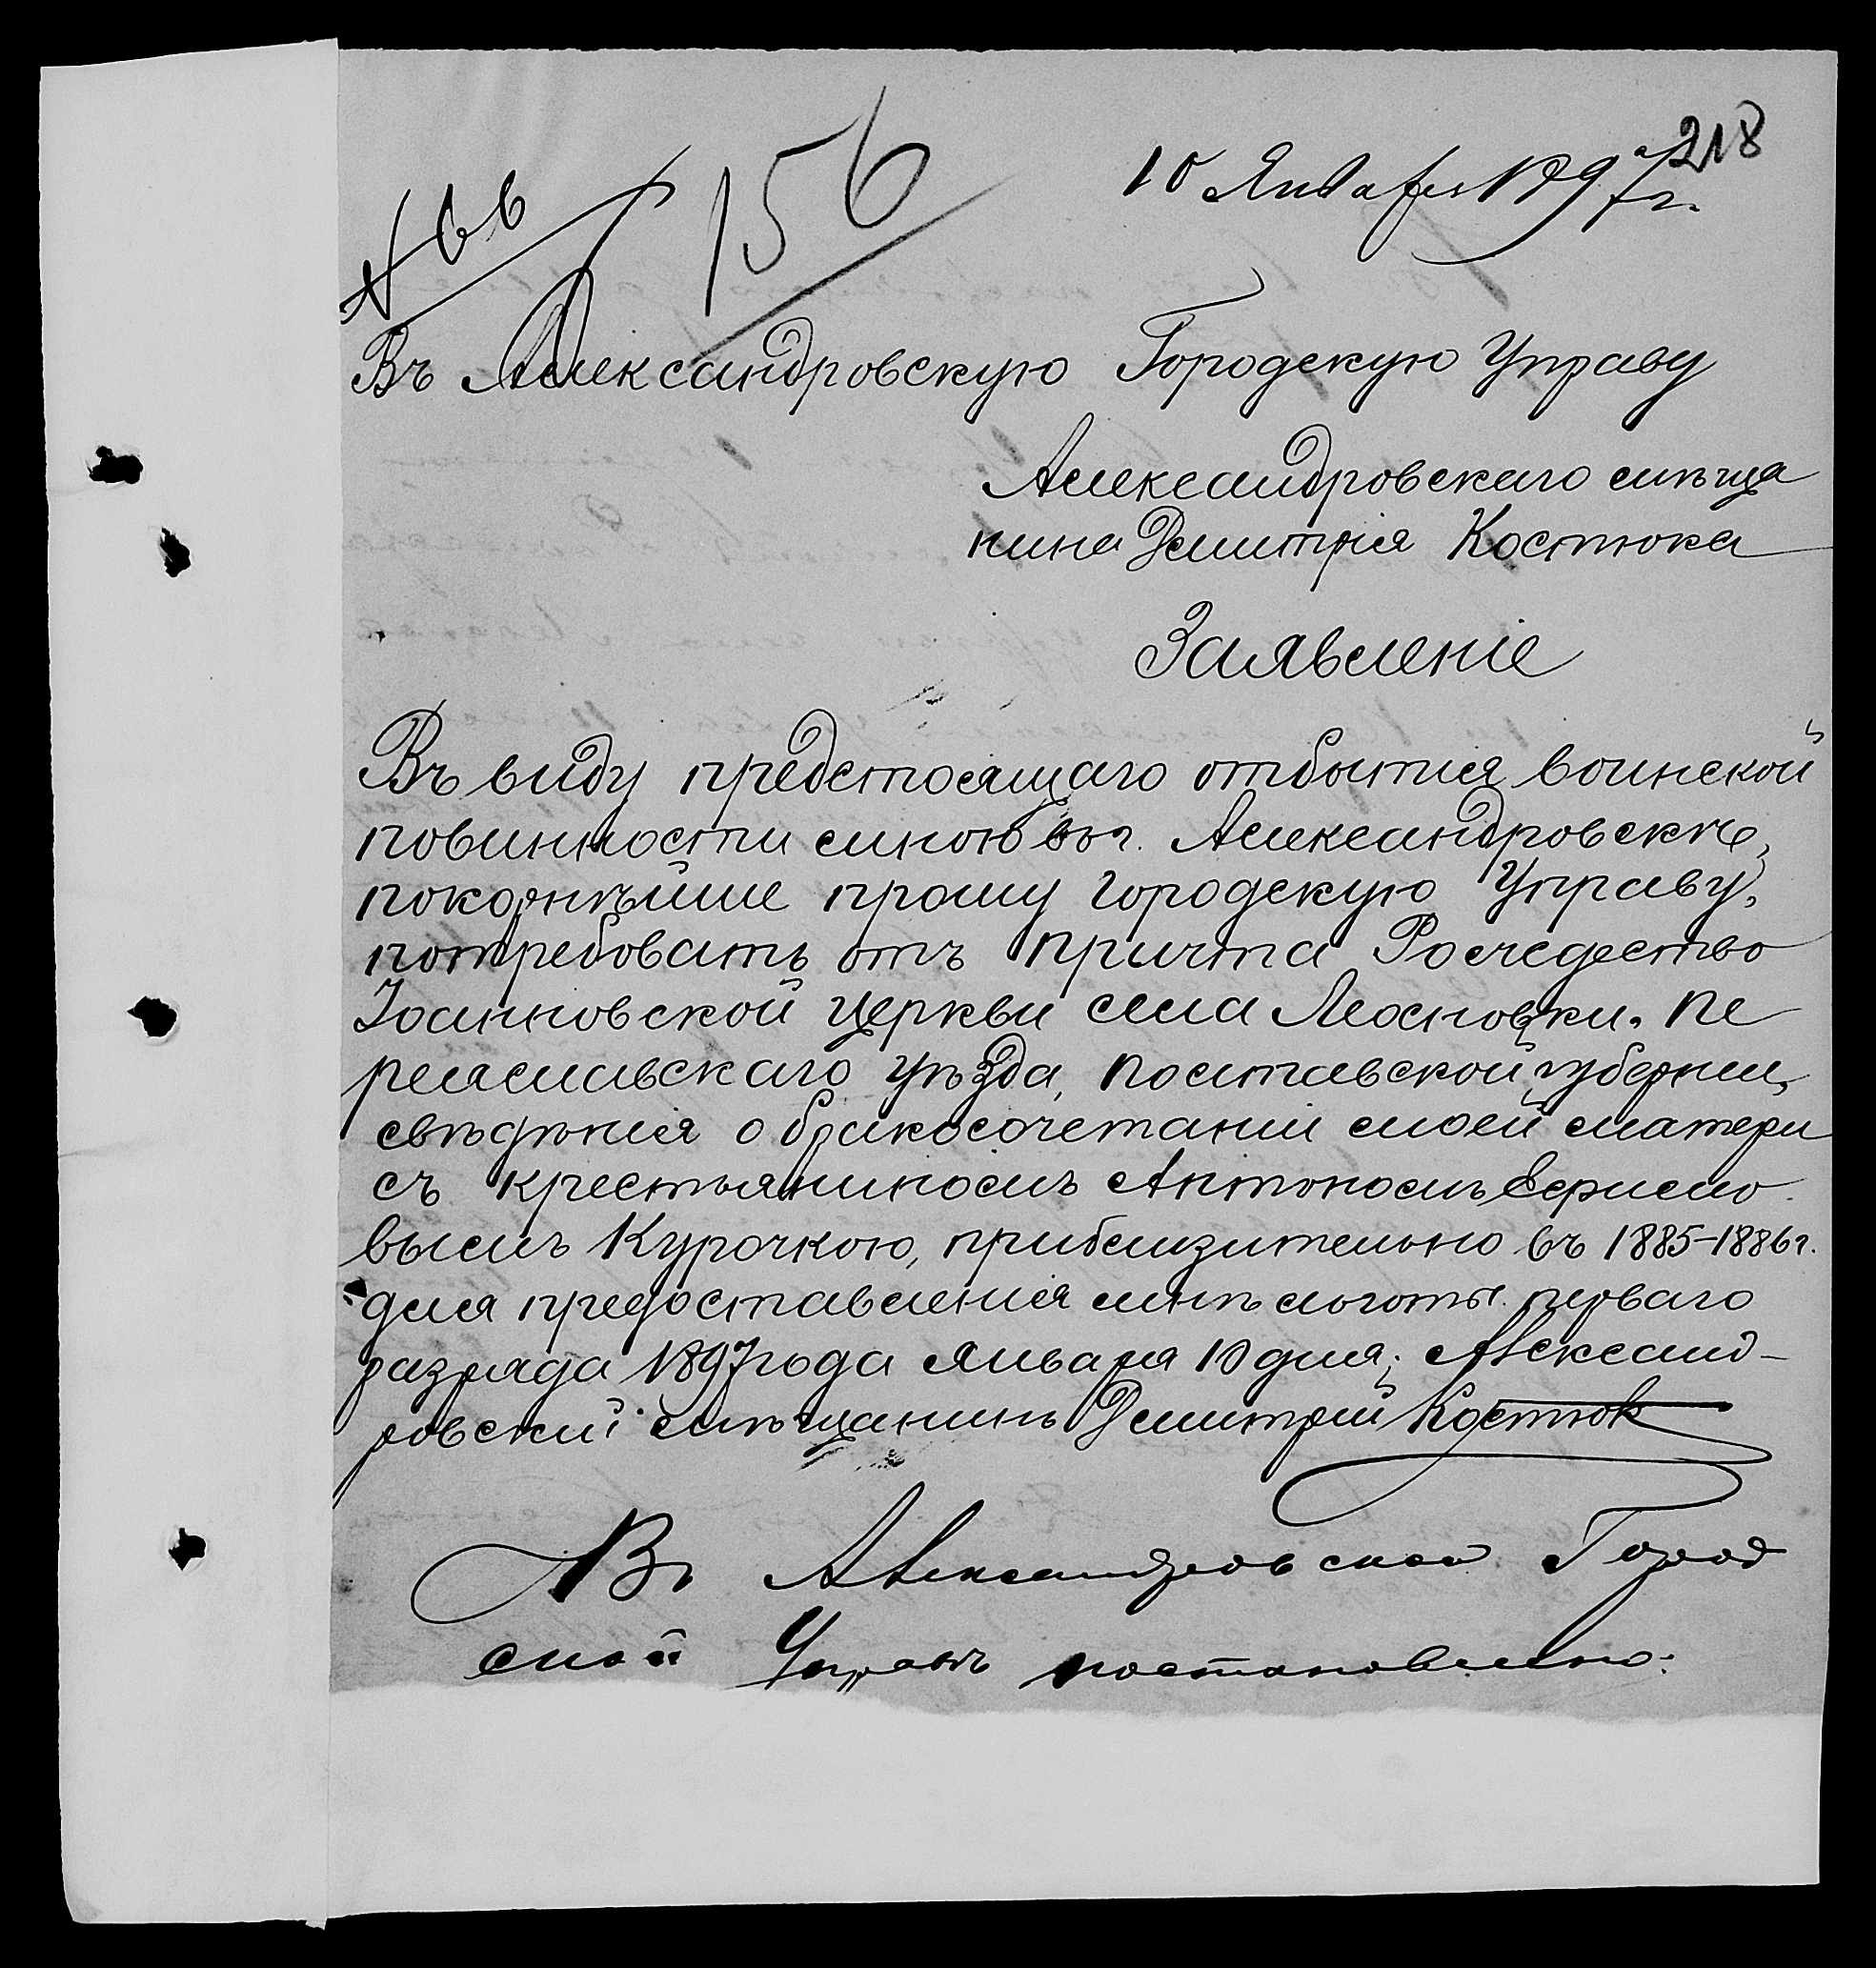 218
10 Января 1897 г.
156
Въ Александровскую Городскую Управу
Александровскаго мѣща
нина Дмитрія Костюка
Заявленіе
Въ виду предстоящаго отбытія воинской
повинности мною въ г. Александровскѣ,
покорнѣйше прошу Городскую Управу,
потребовать отъ причта Рождество
Іоанновской церкви села Пе
реяславскаго уѣзда, Полтавской губерніи,
свѣдѣнія о бракосочетаніи моей матери
съ крестьяниномъ Антономъ Ефимо
вымъ Курочкою, приблизительно въ 1885-1886 г.
для предоставленія мнѣ льготы перваго
разряда 1897 года Января 10 дня; Александ-
ровский мѣщанинъ Дмитрий Костюк
Въ Александровской Город
ской Управѣ постановлено: